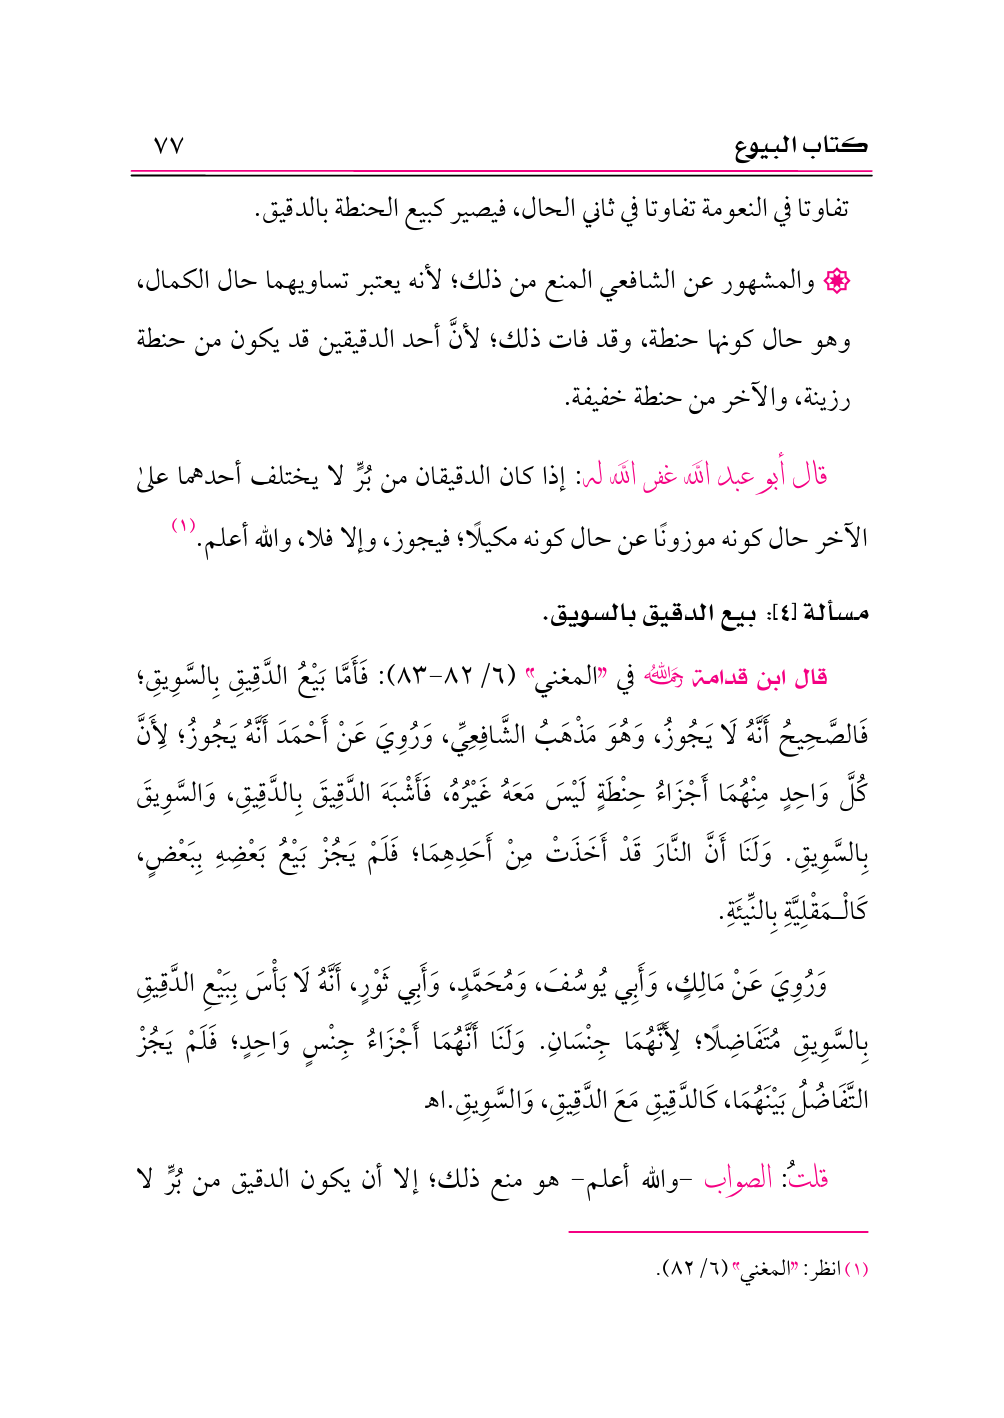 كتاب البيوع ٧٧
تفاوتا في النعومة تفاوتا في ثاني الحال، فيصير كبيع الحنطة بالدقيق.
والمشهور عن الشافعي المنع من ذلك؛ لأنه يعتبر تساويهما حال الكمال،
وهو حال كونها حنطة، وقد فات ذلك؛ لأنَّ أحد الدقيقين قد يكون من حنطة
رزينة، والآخر من حنطة خفيفة.
قال أبو عبد الله غفر الله له: إذا كان الدقيقان من بُرٍّ لا يختلف أحدهما علىٰ
الآخر حال كونه موزونًا عن حال كونه مكيلًا؛ فيجوز، وإلا فلا، والله أعلم.(١)
مسألة [٤]: بيع الدقيق بالسويق.
قال ابن قدامة رحمه الله في "المغني" (٦/ ٨٢-٨٣): فَأَمَّا بَيْعُ الدَّقِيقِ بِالسَّوِيقِ؛
فَالصَّحِيحُ أَنَّهُ لَا يَجُوزُ، وَهُوَ مَذْهَبُ الشَّافِعِيِّ، وَرُوِيَ عَنْ أَحْمَدَ أَنَّهُ يَجُوزُ؛ لِأَنَّ
كُلَّ وَاحِدٍ مِنْهُمَا أَجْزَاءُ حِنْطَةٍ لَيْسَ مَعَهُ غَيْرُهُ، فَأَشْبَهَ الدَّقِيقَ بِالدَّقِيقِ، وَالسَّوِيقَ
بِالسَّوِيقِ. وَلَنَا أَنَّ النَّارَ قَدْ أَخَذَتْ مِنْ أَحَدِهِمَا؛ فَلَمْ يَجُزْ بَيْعُ بَعْضِهِ بِبَعْضٍ،
كَالْـمَقْلِيَّةِ بِالنِّيئَةِ.
وَرُوِيَ عَنْ مَالِكٍ، وَأَبِي يُوسُفَ، وَمُحَمَّدٍ، وَأَبِي ثَوْرٍ، أَنَّهُ لَا بَأْسَ بِبَيْعِ الدَّقِيقِ
بِالسَّوِيقِ مُتَفَاضِلًا؛ لِأَنَّهُمَا جِنْسَانِ. وَلَنَا أَنَّهُمَا أَجْزَاءُ جِنْسٍ وَاحِدٍ؛ فَلَمْ يَجُزْ
التَّفَاضُلُ بَيْنَهُمَا، كَالدَّقِيقِ مَعَ الدَّقِيقِ، وَالسَّوِيقِ.اهـ
قلتُ: الصواب -والله أعلم- هو منع ذلك؛ إلا أن يكون الدقيق من بُرٍّ لا
(١) انظر: "المغني" (٦/ ٨٢).